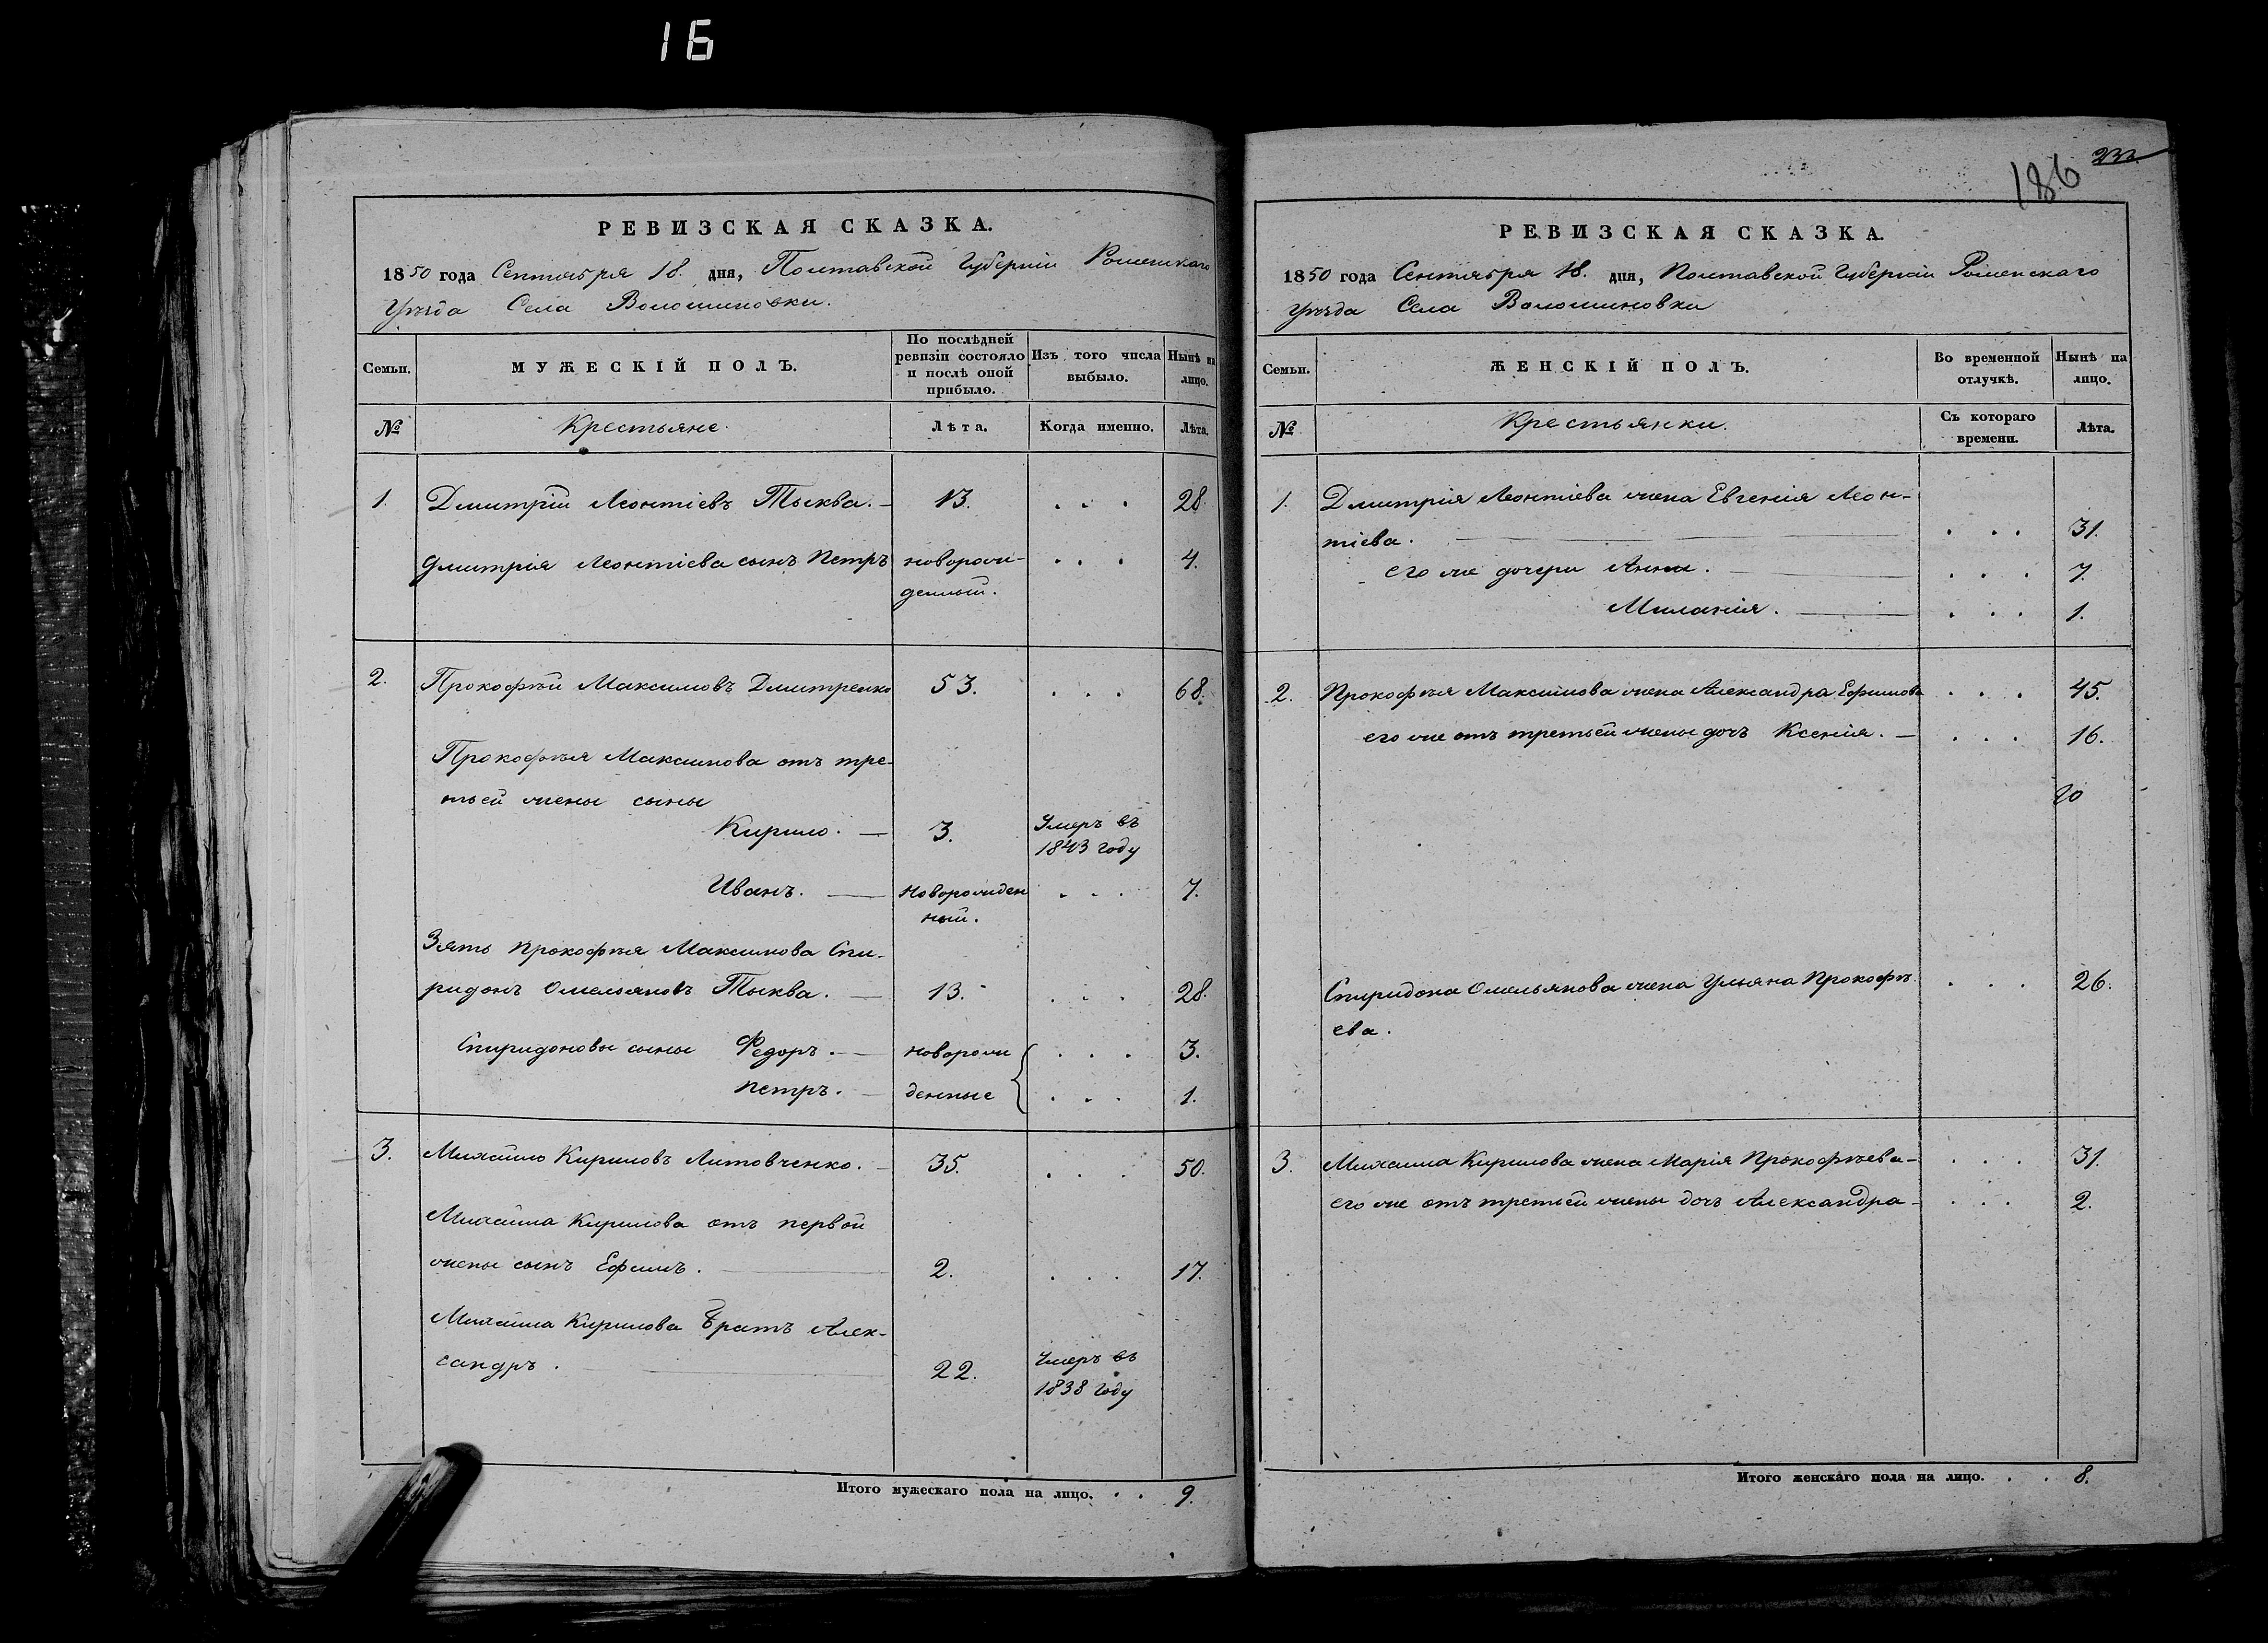 16
РЕВИЗСКАЯ СКАЗКА.
1850 года Сентября 18. дня, Полтавской Губерніи Роменскаго
Уѣзда Села Волошиновки.
Семьи.
МУЖЕСКІЙ ПОЛЪ.
По послѣдней
ревизіи состояло
и послѣ оной
прибыло.
Изъ того числа
выбыло.
Нынѣ на
лицо.
№
Крестьяне.
Лѣта.
Когда именно.
Лѣта.
1. Дмитрій Леонтіевъ Тыква. 13. . . . 28.
Дмитрія Леонтіева сынъ Петръ новорож- . . . 4.
денный.
2. Прокофій Максимовъ Дмитренко 53. . . . 68.
Прокофѣя Максимова отъ тре-
тьей жены сыны
Кирило. 3. Умеръ въ
1843 году
Иванъ. Новорожден . . . 7.
ный.
Зять Прокофѣя Максимова Спи-
ридонъ Омельяновъ Тыква. 13. . . . 28.
Спиридоновы сыны Федоръ. новорож . . . 3.
Петръ. денные . . . 1.
3. Михайло Кириловъ Литовченко. 35. . . . 50.
Михайла Кирилова отъ первой
жены сынъ Ефимъ. 2. . . . 17.
Михайла Кирилова братъ Алек-
сандръ. 22. Умеръ въ
1838 году
Итого мужескаго пола на лицо. . . 9.
186
РЕВИЗСКАЯ СКАЗКА.
1850 года Сентября 18. дня, Полтавской Губерніи Роменскаго
Уѣзда Села Волошиновки
Семьи.
ЖЕНСКІЙ ПОЛЪ.
Во временной
отлучкѣ.
Нынѣ на
лицо.
№
Крестьянки.
Съ котораго
времени.
Лѣта.
1. Дмитрія Леонтіева жена Евгенія Леон-
тіева. . . . 31.
его же дочери Анна. . . . 7.
Миланія. . . . 1.
2. Прокофѣя Максимова жена Александра Ефимова . . . 45.
его же отъ третьей жены дочь Ксенія. . . . 16.
Спиридона Омельянова жена Ульяна Прокофѣ . . . 26.
ева.
3. Михайла Кирилова жена Марія Прокофѣева . . . 31.
его же отъ третьей жены дочь Александра . . . 2.
Итого женскаго пола на лицо. . . 8.